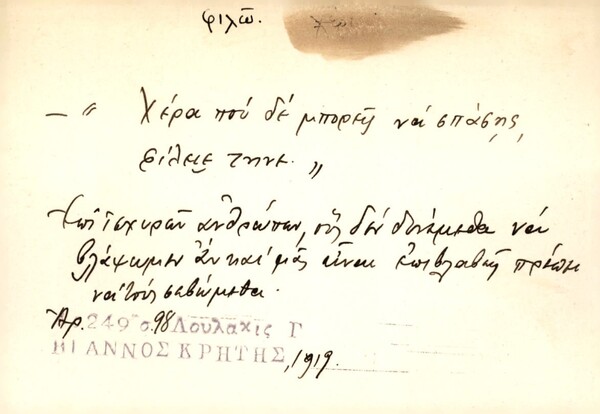 φιλῶ.
— „ Χέρα ποὺ δὲ μπορεῖς νὰ σπάσῃς,
φίλειε τηνε. „
Ἐπὶ ἰσχυρῶν ἀνθρώπων, οὓς δὲν δυνάμεθα νὰ
βλάψωμεν ἂν καὶ μᾶς εἶναι ἐπιβλαβεῖς πρέπει
νὰ τοὺς σεβώμεθα.
Ἀρ. 249 σ. 98 Λουλάκις Γ
ΒΙΑΝΝΟΣ ΚΡΗΤΗΣ, 1919.